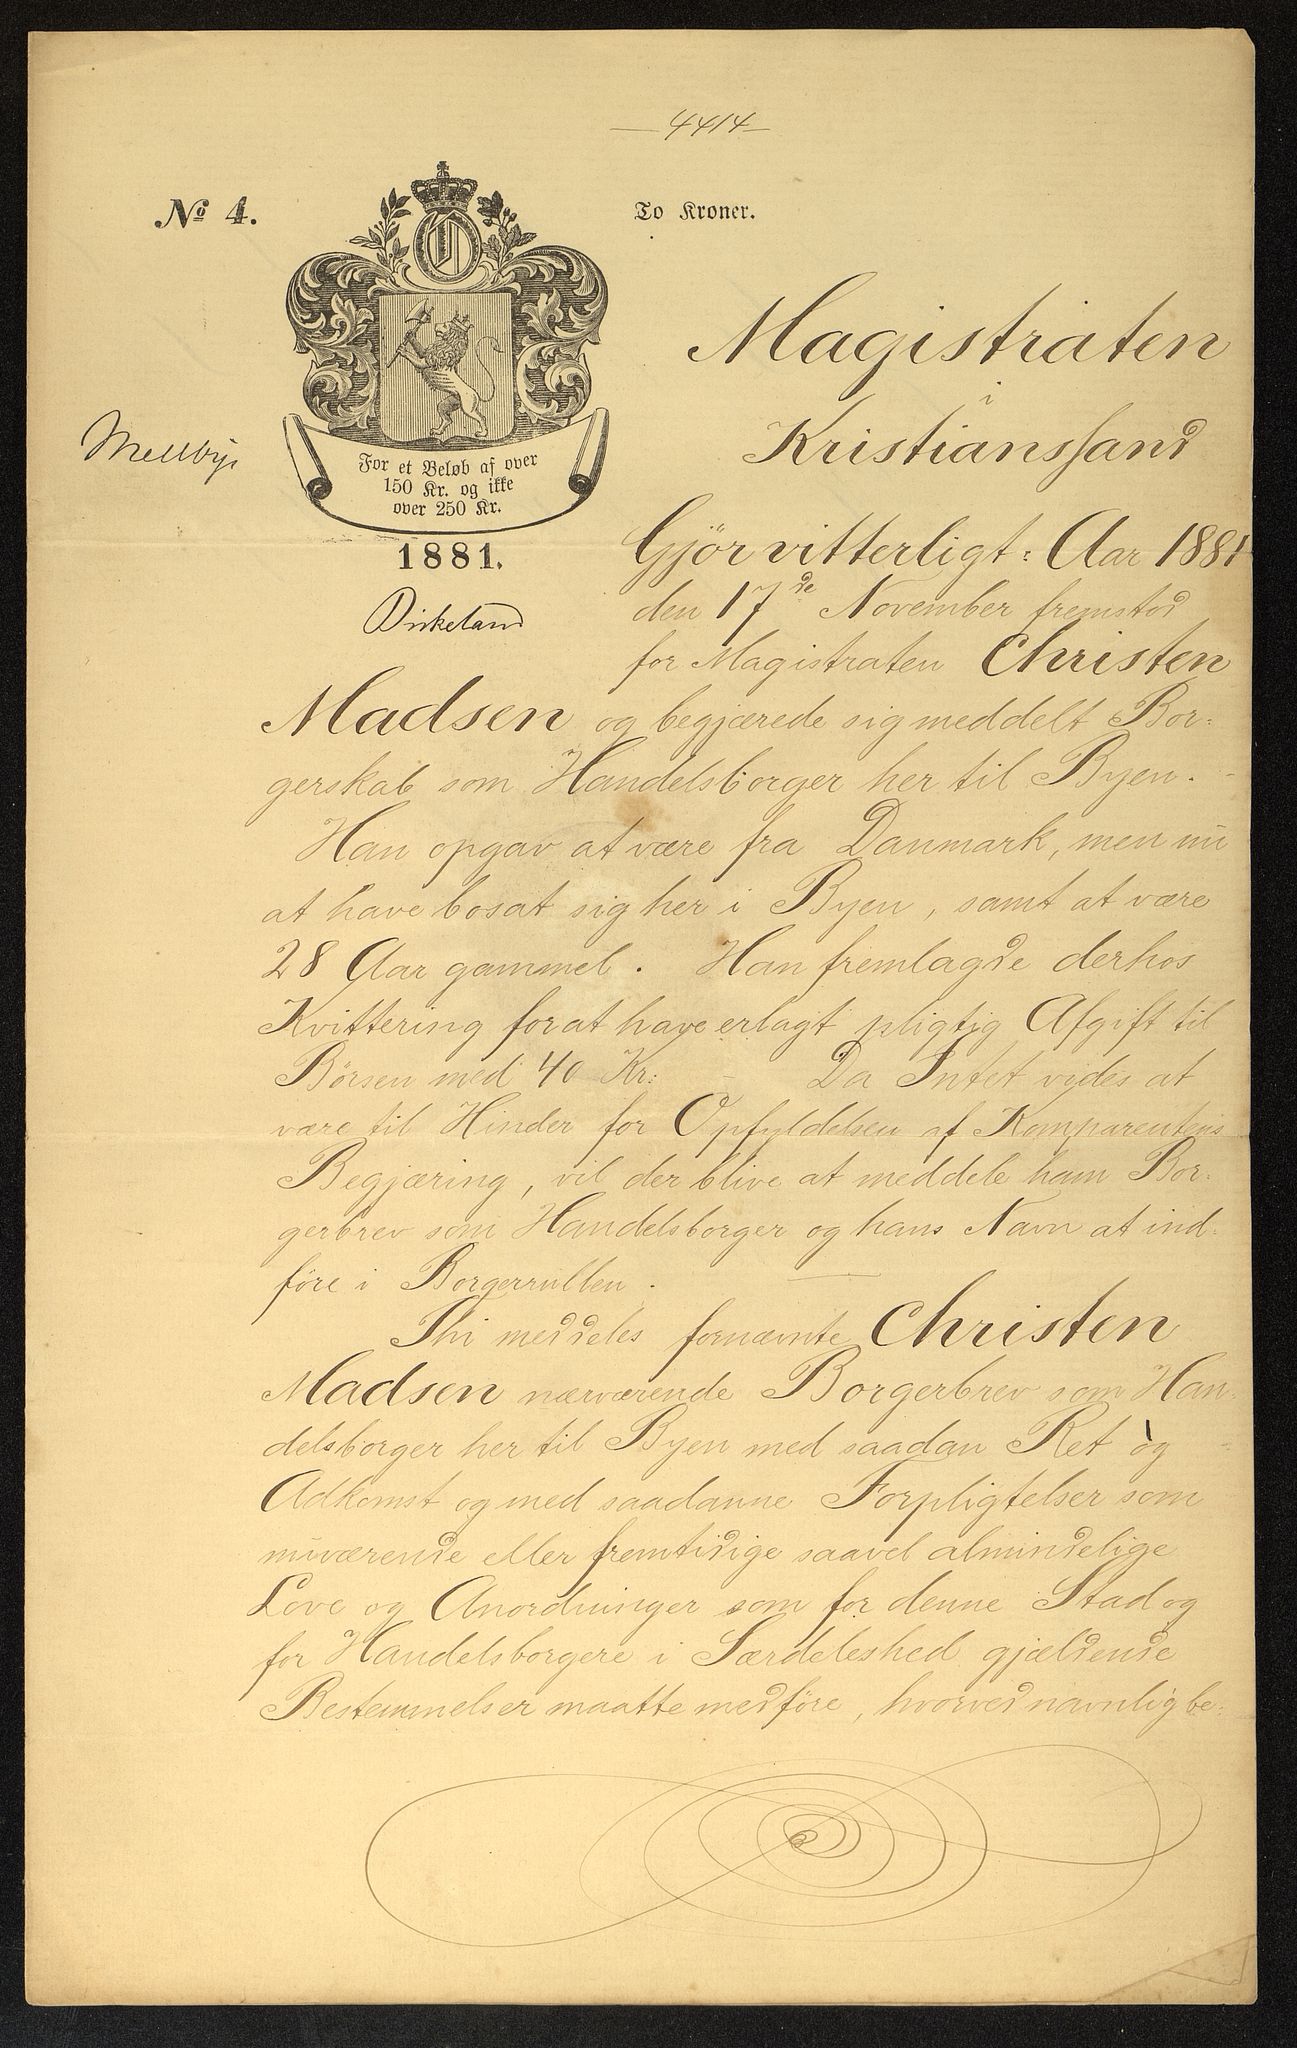 — 4414 —
№ 4.
To Kroner.
O
For et Beløb af over
150 Kr. og ikke
over 250 Kr.
1881.
Birkeland
Magistraten
i
Kristianssand
Gjör vitterligt: Aar 1881
den 17de November fremstod
for Magistraten Christen
Madsen og begjærede sig meddelt Bor-
gerskab som Handelsborger her til Byen.
Han opgav at være fra Danmark, men nu
at have bosat sig her i Byen, samt at være
28 Aar gammel. Han fremlagde derhos
Kvittering for at have erlagt pligtig Afgift til
Börsen med 40 Kr: Da Intet vides at
være til Hinder for Opfyldelsen af Komparentens
Begjæring, vil der blive at meddele ham Bor-
gerbrev som Handelsborger og hans Navn at ind-
före i Borgerrullen. —
Thi meddeles fornævnte Christen
Madsen nærværende Borgerbrev som Han-
delsborger her til Byen med saadan Ret og
Adkomst og med saadanne Forpligtelser som
nuværende eller fremtidige saavel almindelige
Love og Anordninger som for denne Stad og
for Handelsborgere i Særdeleshed gjældende
Bestemmelser maatte medföre, hvorved navnlig be-